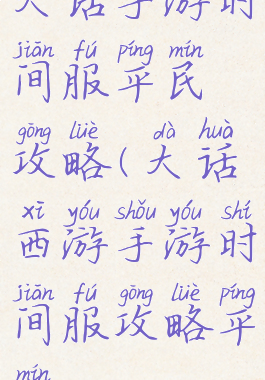 大话手游时
jiān fú píng mín
间服平民
gōng lüè dà huà
攻略(大话
xī yóu shǒu yóu shí
西游手游时
jiān fú gōng lüè píng
间服攻略平
mín